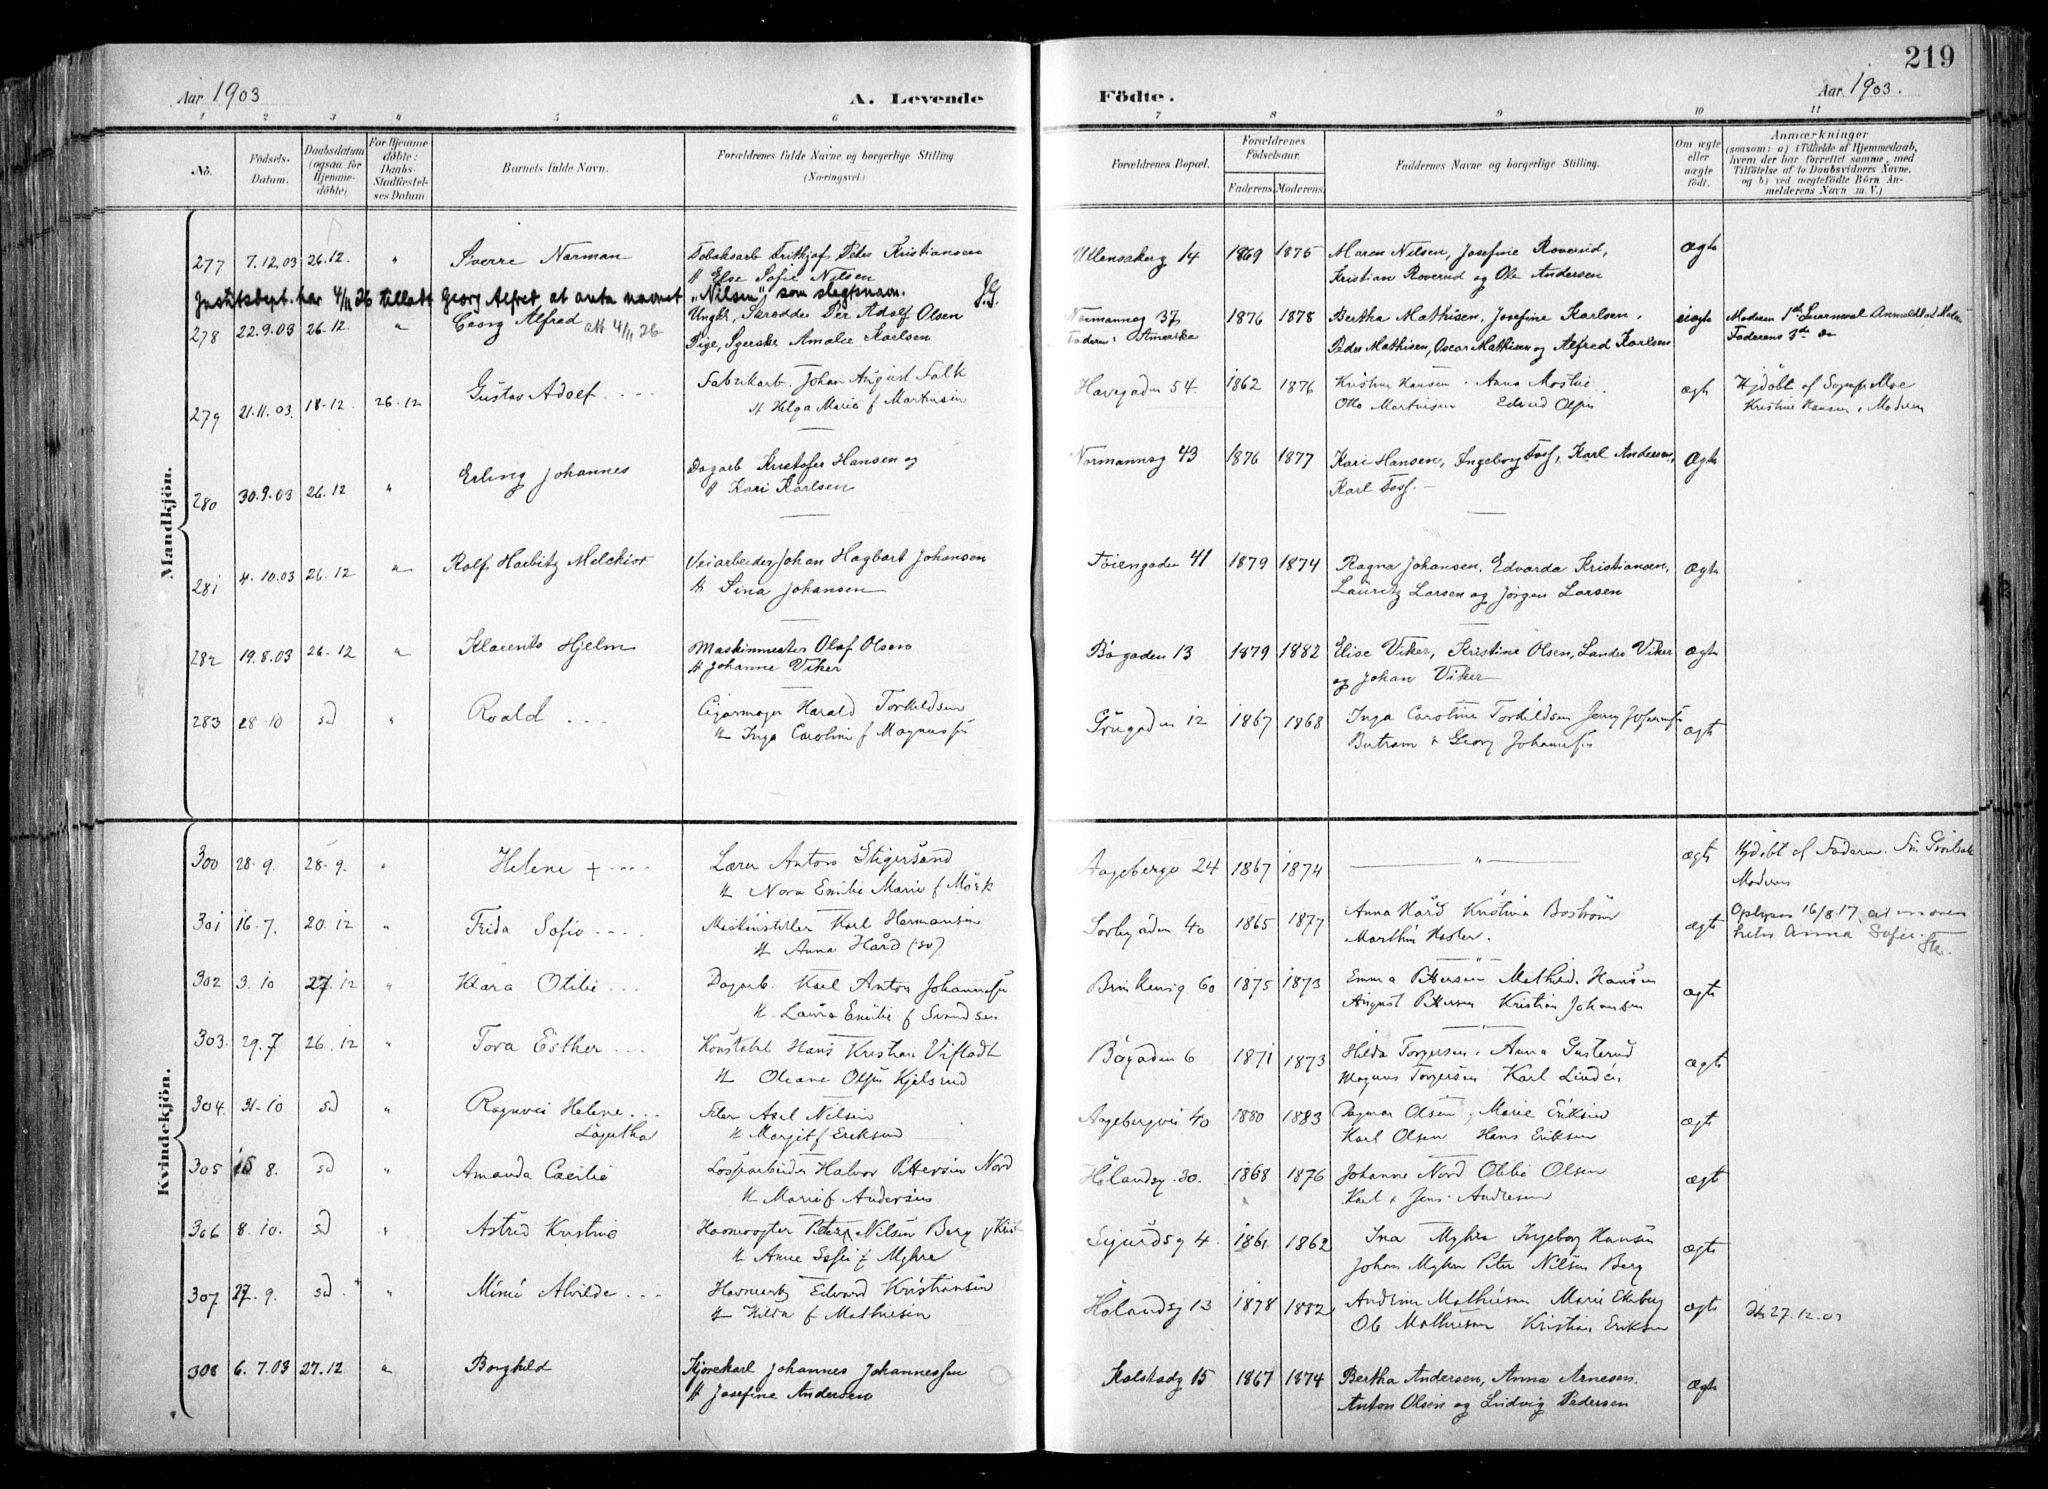 219
Aar 1903
A. Levende
Födte.
Aar 1903.
1 2 3 4 5 6 7 8 9 10 11
No.
Födsels-Datum.
Daabsdatum (ogsaa for Hjemmedöbte)
For Hjemmedöbte: Daabs-Stadfæstelses Datum
Barnets fulde Navn.
Forældrenes fulde Navne og borgerlige Stilling (Næringsvei.)
Forældrenes Bopæl.
Forældrenes Födselsaar.
Faderens. Moderens.
Faddernes Navne og borgerlige Stilling.
Om ægte eller uægte födt.
Anmærkninger
(saasom: a) i Tilfælde af Hjemmedaab, hvem der har forrettet samme, med Tilföielse af to Daabsvidners Navne, og b) ved uægtefödte Börn Anmelderens Navn m. V.)
Mandkjön.
277 7.12.03 26.12. " Sverre Norman Tobaksarb Frithjof Peder Kristiansen Ullensakerg 14 1869 1875 Maren Nilsen, Josefine Roverud, ægte
H Else Sofie Nilsen Kristian Roverud og Ole Andersen
Justitsdept. har 4/11 26 tilladt Georg Alfred, at anta navnet "Nilsen", som slegtsnavn.
278 22.9.03 26.12. " Georg Alfred att 4/11 26 Ungk, Skrædder Per Adolf Olsen Normannsg 37 1876 1878 Bertha Mathisen, Josefine Karlsen, uægte Moderen 1ste
Pige, Syerske Amalie Karlsen Faderen: Amerika Peder Mathisen, Oscar Mathisen og Alfred Karlsen Faderens 3de do
279 21.11.03. 18-12. 26-12 Gustav Adolf Fabrikarb. Johan August Falk Havegaden 54. 1862 1876 Kristine Hansen. Anna ægt Hjdöbt af
H Helga Marie f Martinsen Otto Martinsen Kristine Hansen, Moderen
280 30.9.03 26.12 " Erling Johannes Dagarb Kristofer Hansen og Normannsg 43 1876 1877 Kari Hansen, Ingeborg Foss, Karl Andersen, Ægte
H Kari Karlsen Karl Foss.
281 4.10.03 26.12 " Rolf Harbitz Melchior Veiarbeider Johan Hagbart Johansen Töiengaden 41 1879 1874 Ragna Johansen, Edvarda Kristiansen, Ægte
H Sina Johansen Lauritz Larsen og Jörgen Larsen
282 19.8.03 26.12 " Klarents Hjelm Maskinmester Olaf Olsen Bögaden 13 1879 1882 Elise Viker, Kristine Olsen, Lander Viker ægte
H Johanne Viker og Johan Viker
283 28-10 sd " Roald Cigarmager Harald Torkildsen Grügaden 12 1867 1868 Inga Caroline Torkildsen ægte
H Inga Caroline f Magnussen Georg Johannesen
Kvindekjön.
300 28.9. 28-9. " Helene + Lærer Anton Stigersand Aagebergv 24 1867 1874 " ægte Hjdöbt af Faderen.
H Nora Emilie Marie f Mörk Moderen
301 16.7. 20.12 " Frida Sofie Maskinstiller Karl Hermansen Sorlegaden 40 1865 1877 Anna Hård Kristina Boström ægte Oplyses 16/8.17, at
H Anna Hård (sv) heter Anna Sofie.
302 3.10 27.12 " Klara Otilie Dagarb. Karl Anton Johannessen 60 1875 1873 Emma Pettersen Mathid. Hansen ægte
H Laura Emilie f Svendsen August Pettersen Kristian Johansen
303. 29.7 26.12 " Tora Esther Konstabel Hans Kristian Vifladt Bögaden 6 1871 1873 Hilda Torgersen, Anna Gusterud ægte
H Oleane Olsen Kjelsrud Magnus Torgersen Karl Lindén
304. 31-10 sd " Ragnvei Helene Filer Axel Nilsen Aagebergvei 40 1880 1883 Dagmar Olsen, Marie Eriksen ægt
Lagutha H Margit f Eriksen Karl Olsen Hans Eriksen
305 15 8. sd " Amanda Cæcilie Losserarbeider Halvor Pettersen Nord Hölandsg. 30. 1868 1876 Johanne Nord Otilie Olsen ægt
H Marie f Andersen Karl & Jens Andresen
306 8.10. sd " Astrid Kristine Havnevogter Peter Nilsen Berg Sigurdsg 4. 1861 1862 Ina Myhre Ingeborg Hansen ægte
H Anne Sofie f Myhre Johan Myhre Peter Nilsen Berg
307 27.9. sd. " Mimi Alvilde Havnearb Edvard Kristiansen Hölandsg 13 1878 1882 Andrine Mathiesen Marie Ekeberg ægte 27.12.03
H Hilda f Mathiesen Ole Mathiesen Kristian Eriksen
308 6.7.03 27.12 " Borghild Kjörekarl Johannes Johannessen Kolstadg 15 1867 1874 Bertha Andersen, Anna Arnesen. Ægte
H Josefine Andersen Anton Olsen og Ludvig Pedersen